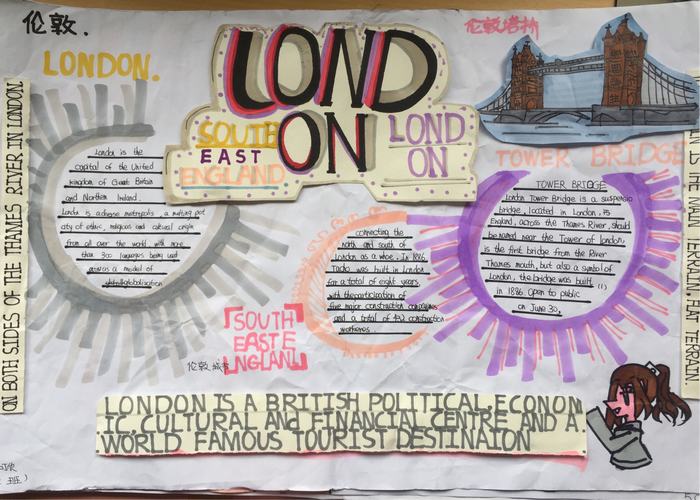 伦敦.
LONDON.
LOND
ON
SOUTH
EAST
ENGLAND
LOND
ON
伦敦塔桥
TOWER BRIDGE
ON BOTH SIDES OF THE THAMES RIVER IN LONDON
London is the
capital of the United
kingdom of Great Britain
and Northern Ireland
London is a diverse metropolis, a melting pot
city of ethnic, religious and cultural origin
from all over the world, with more
than 300 languages being used
as a model of
globalization
connecting the
north and south of
London as a whole. In 1886
was built in London
for a total of eight years,
with the participation of
five major construction companies
and a total of 432 construction
workeres.
TOWER BRIDGE
London Tower Bridge is a suspensio
bridge, located in London,
England, across the Thames River, should
be named near the Tower of London,
is the first bridge from the River
Thames mouth, but also a symbol of
London, the bridge was built
in 1886 Open to public
on June 30,
SOUTH
EAST E
NGLAND
伦敦城
LONDON IS A BRITISH POLITICAL, ECONOM
IC, CULTURAL AND FINANCIAL CENTRE AND A
WORLD FAMOUS TOURIST DESTINAION
IN THE MAIN TERRAIN FLAT TERRAIN
班)